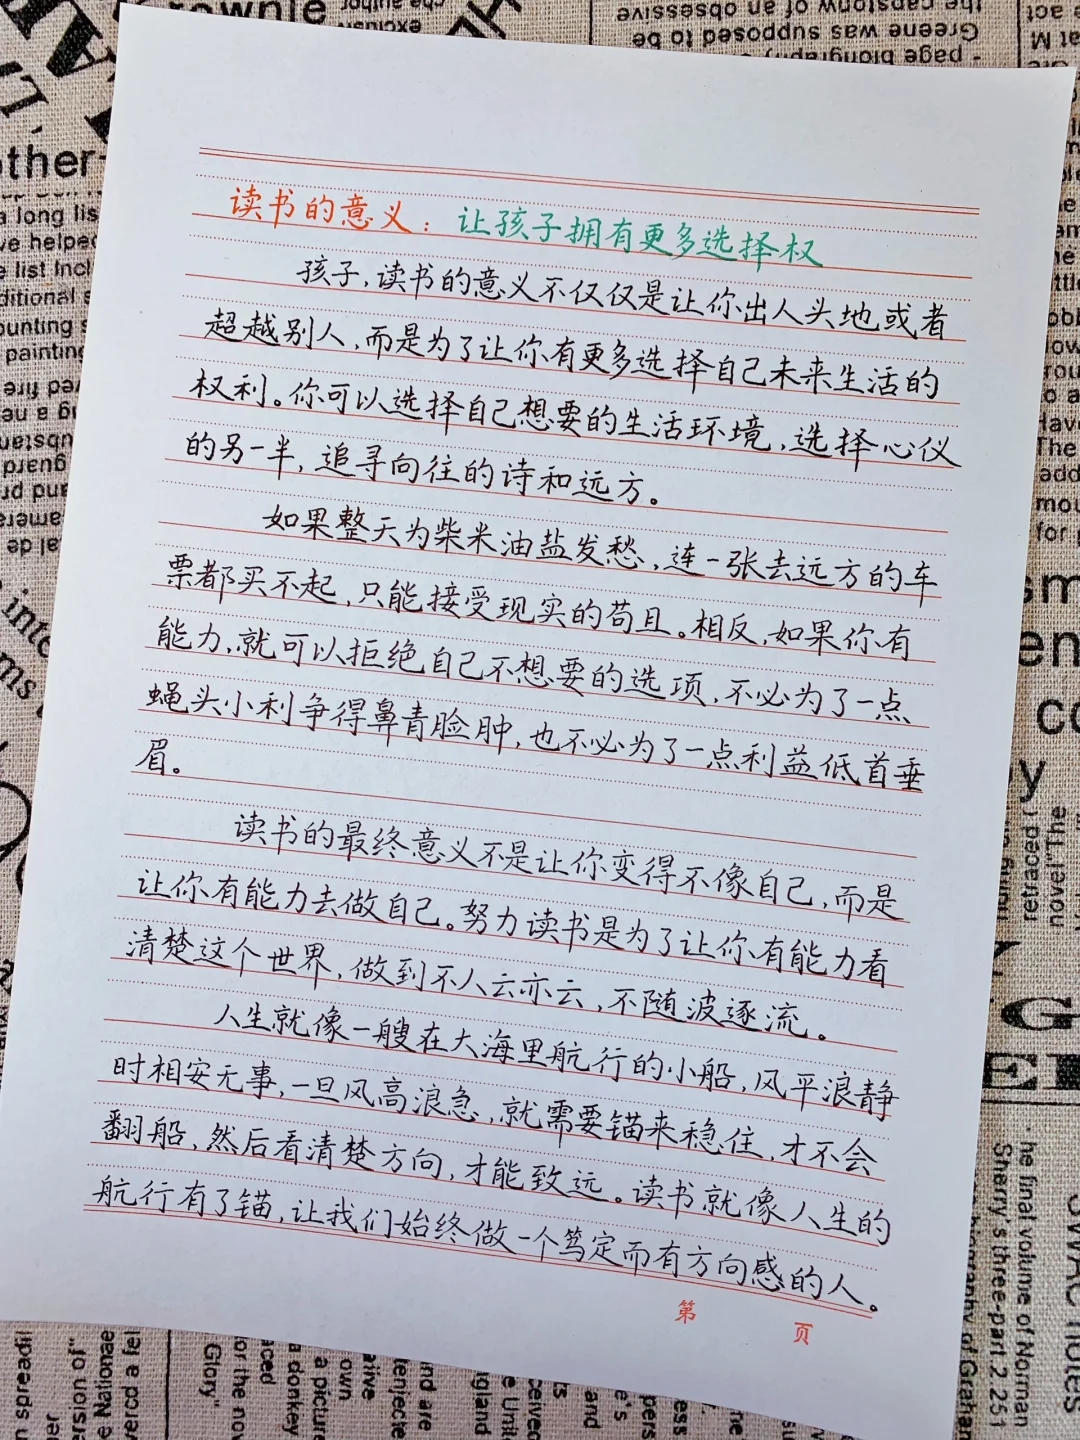 读书的意义：让孩子拥有更多选择权
孩子，读书的意义不仅仅是让你出人头地或者
超越别人，而是为了让你有更多选择自己未来生活的
权利。你可以选择自己想要的生活环境，选择心仪
的另一半，追寻向往的诗和远方。
如果整天为柴米油盐发愁，连一张去远方的车
票都买不起，只能接受现实的苟且。相反，如果你有
能力，就可以拒绝自己不想要的选项，不必为了一点
蝇头小利争得鼻青脸肿，也不必为了一点利益低首垂
眉。
读书的最终意义不是让你变得不像自己，而是
让你有能力去做自己。努力读书是为了让你有能力看
清楚这个世界，做到不人云亦云，不随波逐流。
人生就像一艘在大海里航行的小船，风平浪静
时相安无事，一旦风高浪急，就需要锚来稳住，才不会
翻船，然后看清楚方向，才能致远。读书就像人生的
航行有了锚，让我们始终做一个笃定而有方向感的人。
第 页